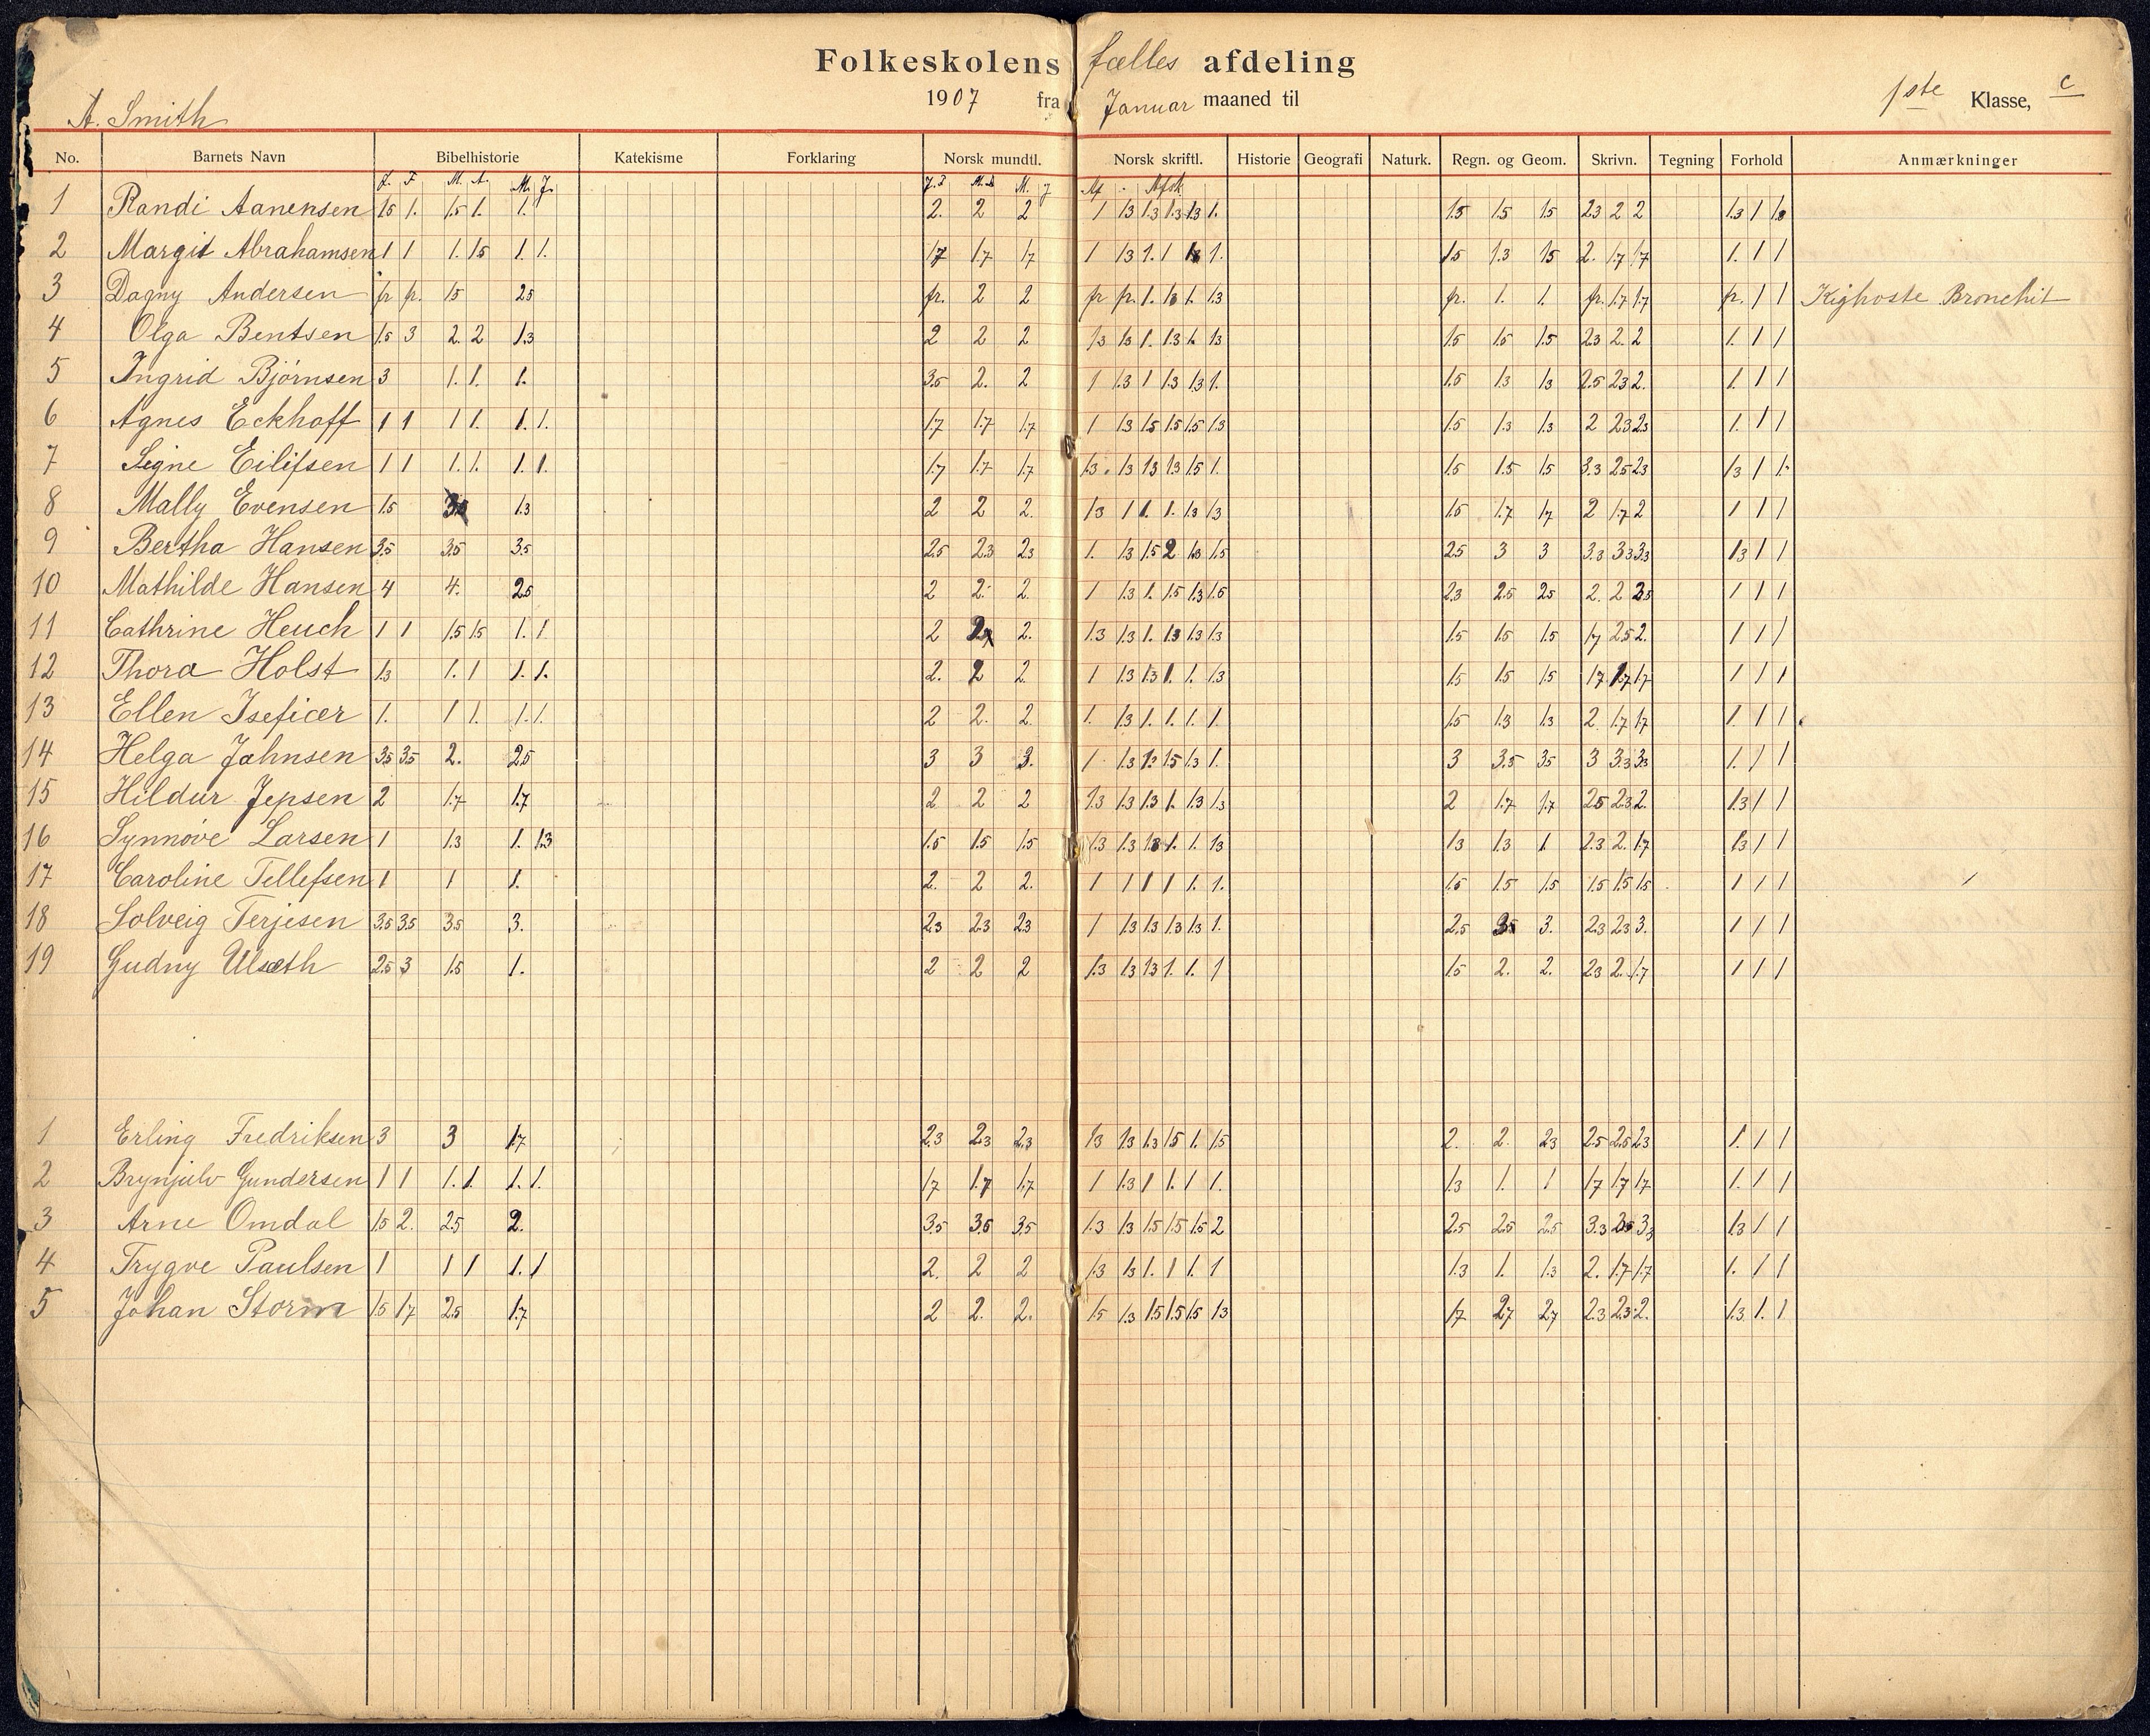 Folkeskolens fælles afdeling
A. Smith 1907 fra Januar maaned til 1ste Klasse, c
No. Barnets Navn Bibelhistorie Katekisme Forklaring Norsk mundtl. Norsk skriftl. Historie Geografi Naturk. Regn. og Geom. Skrivn. Tegning Forhold Anmærkninger
1 Randi Aanensen 1.5 1. 1.5 1. 1. 2. 2 2 1 1.3 1.3 1.3 1.3 1. 1.5 1.5 1.5 2.3 2 2 1.3 1
2 Margit Abrahamsen 1 1 1. 1.5 1. 1. 1.7 1.7 1.7 1 1.3 1. 1 1. 1.5 1.3 1.5 2. 1.7 1.7 1. 1 1
3 Dagny Andersen fr fr. 1.5 2.5 fr. 2 2 fr fr. 1. 1.3 1. 1.3 fr. 1. 1. fr. 1.7 1.7 fr. 1 1 Kighoste Bronchit
4 Olga Bentsen 1.5 3 2. 2 1.3 2 2 2 1.3 1.3 1. 1.3 1. 1.3 1.5 1.5 1.5 2.3 2. 2 1. 1 1
5 Ingrid Bjørnsen 3 1. 1. 1. 3.5 2. 2 1 1.3 1 1.3 1.3 1. 1.5 1.3 1.3 2.5 2.3 2. 1. 1 1
6 Agnes Eckhoff 1 1 1 1. 1. 1. 1.7 1.7 1.7 1 1.3 1.5 1.5 1.5 1.3 1.5 1.3 1.3 2 2.3 2.3 1. 1 1
7 Signe Eilifsen 1 1 1. 1. 1. 1. 1.7 1.7 1.7 1.3 1.3 1.3 1.3 1.5 1. 1.5 1.5 1.5 3.3 2.5 2.3 1.3 1 1.
8 Mally Evensen 1.5 1.3 2 2 2. 1.3 1 1. 1. 1.3 1.3 1.5 1.7 1.7 2 1.7 2 1 1 1
9 Bertha Hansen 3.5 3.5 3.5 2.5 2.3 2.3 1. 1.3 1.5 2 1.3 1.5 2.5 3 3 3.3 3.3 3.3 1.3 1 1
10 Mathilde Hansen 4 4. 2.5 2 2. 2. 1 1.3 1. 1.5 1.3 1.5 2.3 2.5 2.5 2. 2 1 1 1
11 Cathrine Heuch 1 1 1.5 1.5 1. 1. 2 2. 1.3 1.3 1. 1.3 1.3 1.3 1.5 1.5 1.5 1.7 2.5 2. 1 1 1
12 Thora Holst 1.3 1. 1 1. 1. 2. 2 2. 1 1.3 1.3 1. 1. 1.3 1.5 1.5 1.5 1.7 1.7 1.7 1 1 1
13 Ellen 1. 1 1. 1. 1. 2 2. 2. 1. 1.3 1. 1. 1. 1. 1.5 1.3 1.3 2 1.7 1.7 1. 1 1
14 Helga Jahnsen 3.5 3.5 2. 2.5 3 3 3. 1 1.3 1.5 1.3 1. 3 3.5 3.5 3 3.3 3.3 1. 1 1
15 Hildur Jepsen 2 1.7 1.7 2 2 2 1.3 1.3 1.3 1. 1.3 1.3 2 1.7 1.7 2.5 2.3 2. 1.3 1 1
16 Synnøve Larsen 1 1.3 1. 1.3 1.5 1.5 1.5 1.3 1.3 1.3 1. 1. 1.3 1.3 1.3 1 2.3 2. 1.7 1.3 1 1
17 Caroline Tellefsen 1 1 1. 2. 2 2. 1 1 1 1 1. 1. 1.5 1.5 1.5 1.5 1.5 1.5 1 1 1
18 Solveig Terjesen 3.5 3.5 3.5 3. 2.3 2.3 2.3 1 1.3 1.3 1.3 1.3 1. 2.5 3. 2.3 2.3 3. 1 1 1
19 Gudny Ulsæth 2.5 3 1.5 1. 2 2 2 1.3 1.3 1.3 1. 1. 1 1.5 2. 2. 2.3 2. 1.7 1 1 1
1 Erling Fredriksen 3 3 1.7 2.3 2.3 2.3 1.3 1.3 1.3 1.5 1. 1.5 2. 2. 2.3 2.5 2.5 2.3 1. 1 1
2 Brynjulv Gundersen 1 1 1. 1. 1. 1. 1.7 1.7 1.7 1 1.3 1 1. 1 1. 1.3 1. 1 1.7 1.7 1.7 1. 1 1
3 Arne Omdal 1.5 2. 2.5 2. 3.5 3.5 3.5 1.3 1.3 1.5 1.5 1.5 2 2.5 2.5 2.5 3.3 3.3 1.3 1 1
4 Trygve Paulsen 1 1 1 1. 1 2. 2 2 1.3 1.3 1. 1 1. 1 1.3 1. 1.3 2. 1.7 1.7 1. 1 1
5 Johan Storm 1.5 1.7 2.5 1.7 2 2. 2. 1.5 1.3 1.5 1.5 1.5 1.3 1.7 2.7 2.7 2.3 2.3 2. 1.3 1. 1